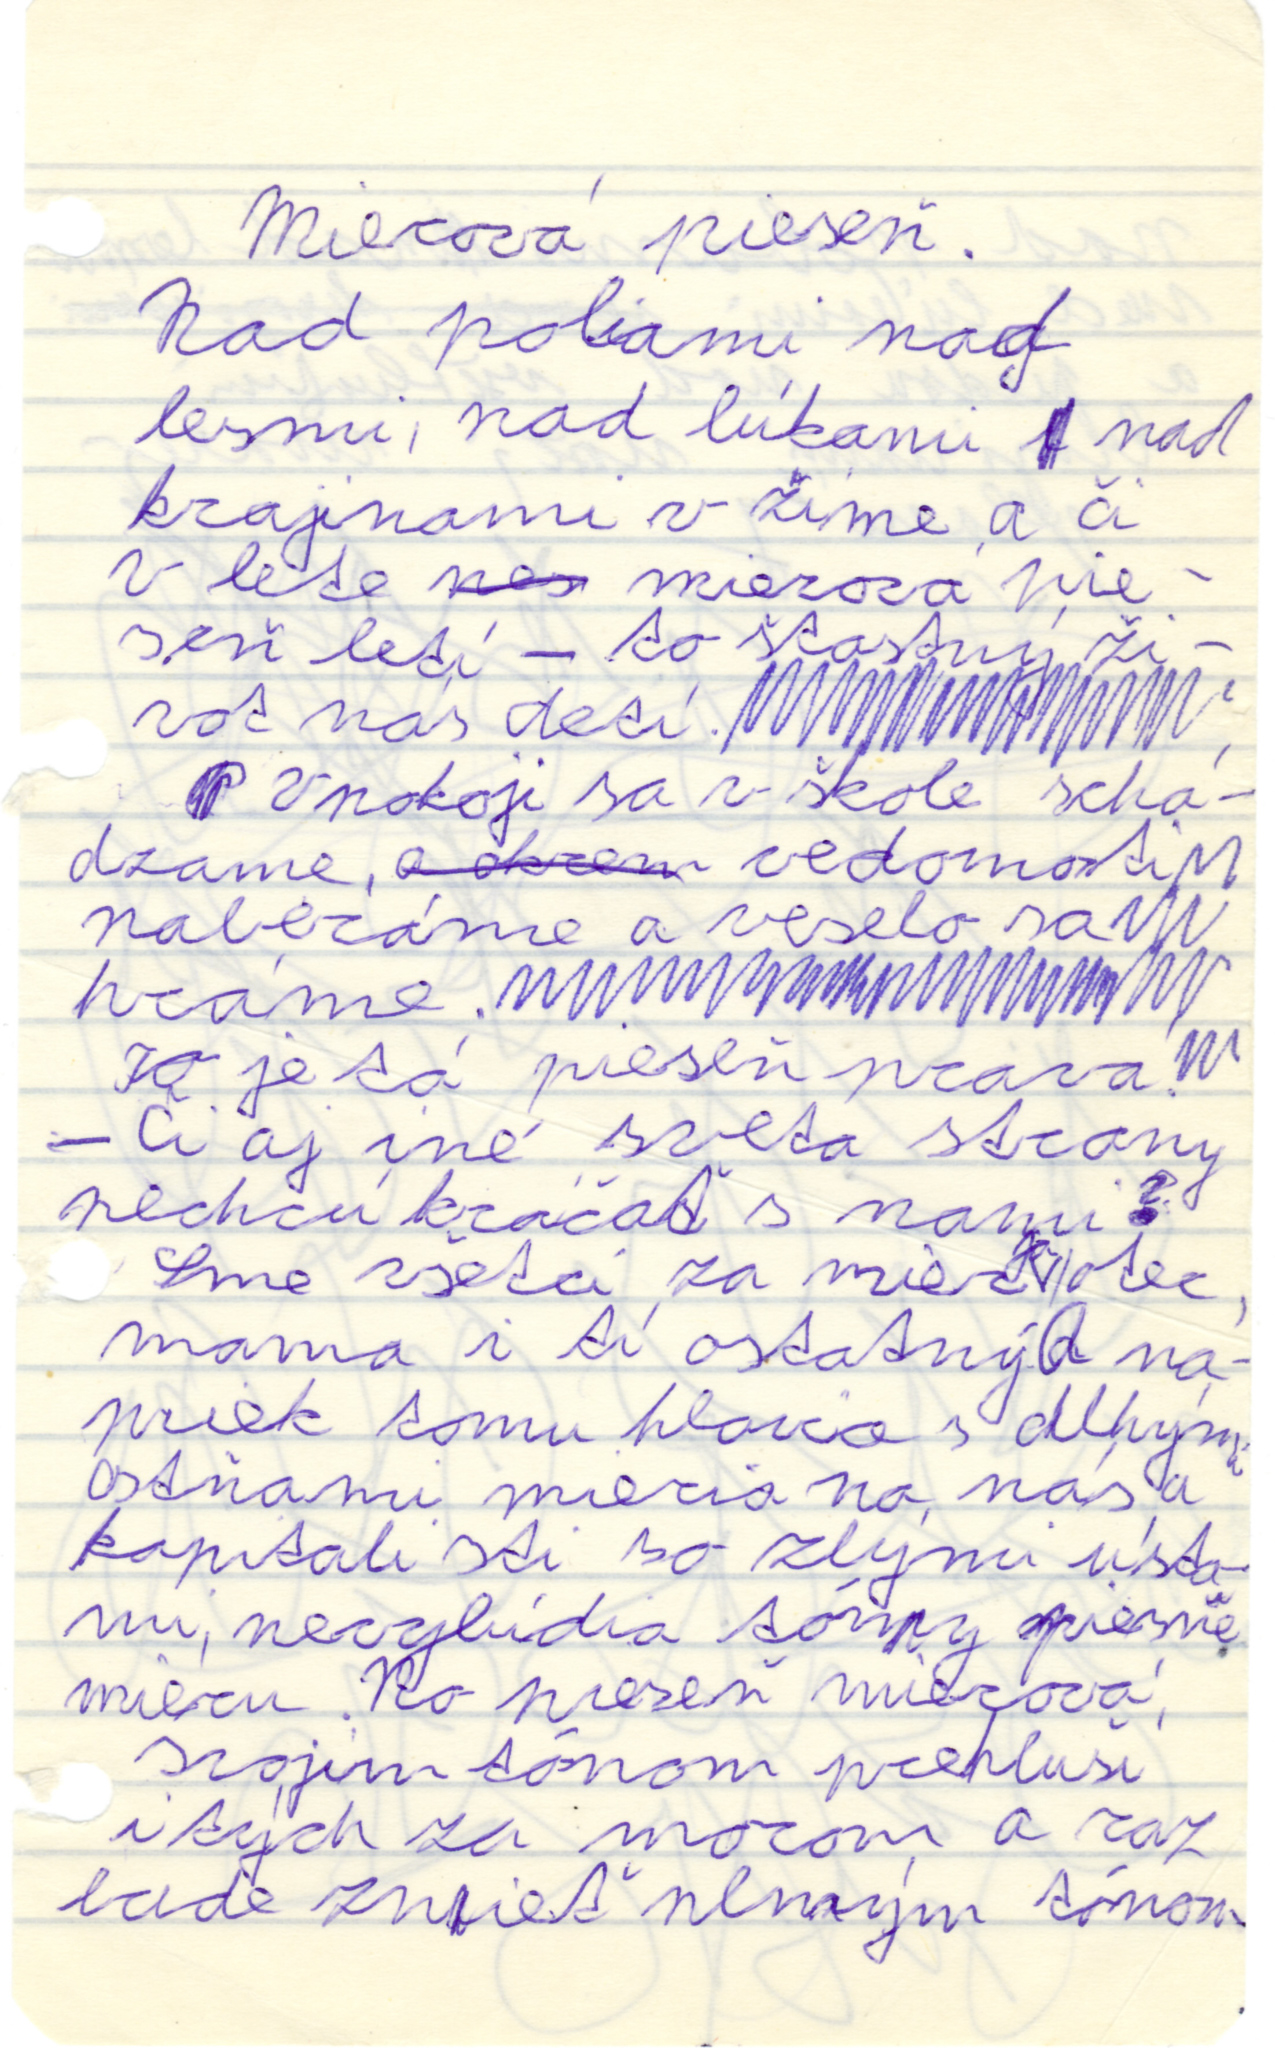 Mierová pieseň.
Nad poliami nad
lesmi, nad lúkami nad
krajinami v zime a či
v lete mierová pie-
seň letí – to šťastný ži-
vot nás detí.
V pokoji sa v škole schá-
dzame, vedomosti
naberáme a veselo sa
hráme.
To je tá pieseň pravá!
– Či aj iné sveta strany
nechcú kráčať s nami?
Sme všetci za mier otec,
mama i tí ostatný na-
priek tomu hlavice s dlhými
ostňami mieria na nás a
kapitalisti so zlými ústa-
mi, nevyludia tóny piesne
mieru. No pieseň mierová,
svojim tónom prehluší
i tých za morom a raz
bude znieť plným tónom